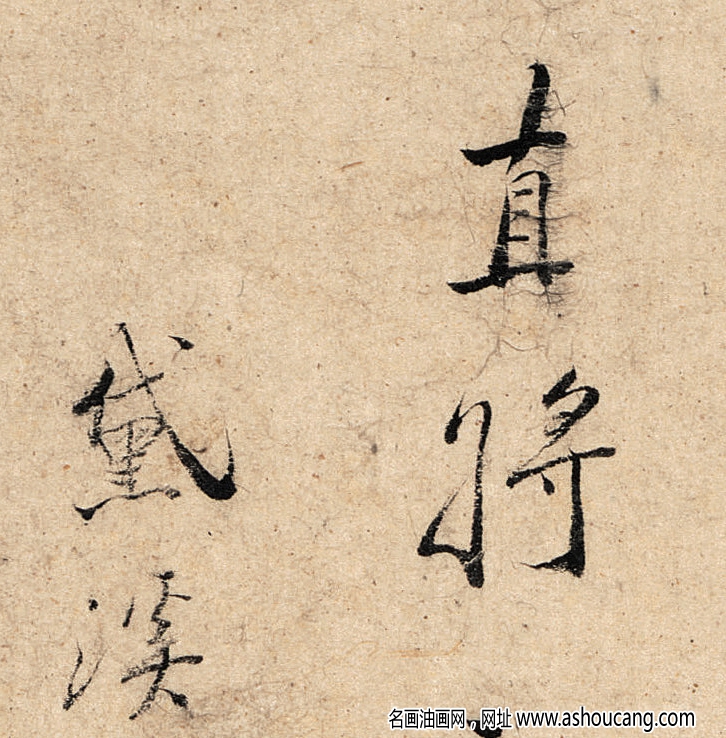 直将
黛溪
名画油画网，网址 www.ashoucang.com